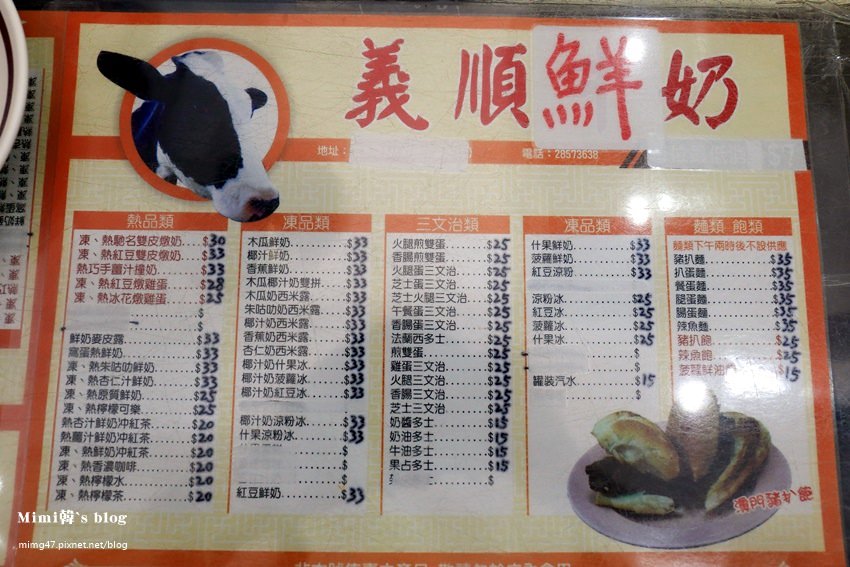 義順鮮奶
地址：
電話：28573638
熱品類
凍、熱馳名雙皮燉奶 $30
凍、熱紅豆雙皮燉奶 $33
熱巧手薑汁撞奶 $33
凍、熱紅豆燉雞蛋 $28
凍、熱冰花燉雞蛋 $25
$
$
鮮奶麥皮露 $33
窩蛋熱鮮奶 $33
凍、熱朱咕叻鮮奶 $33
凍、熱杏仁汁鮮奶 $33
凍、熱原質鮮奶 $25
凍、熱檸檬可樂 $25
熱杏汁鮮奶冲紅茶 $20
熱薑汁鮮奶冲紅茶 $20
凍、熱鮮奶冲紅茶 $20
凍、熱香濃咖啡 $20
凍、熱檸檬水 $20
凍、熱檸檬茶 $20
凍品類
木瓜鮮奶 $33
椰汁鮮奶 $33
香蕉鮮奶 $33
木瓜椰汁奶雙拼 $33
木瓜奶西米露 $33
朱咕叻奶西米露 $33
椰汁奶西米露 $33
香蕉奶西米露 $33
杏仁奶西米露 $33
椰汁奶什果冰 $33
椰汁奶菠蘿冰 $33
椰汁奶紅豆冰 $33
椰汁奶涼粉冰 $33
什果涼粉冰 $33
$
$
$
紅豆鮮奶 $33
三文治類
火腿煎雙蛋 $25
香腸煎雙蛋 $25
火腿蛋三文治 $25
芝士蛋三文治 $25
芝士火腿三文治 $25
午餐蛋三文治 $25
香腸蛋三文治 $25
法蘭西多士 $25
煎雙蛋 $25
雞蛋三文治 $25
火腿三文治 $25
香腸三文治 $25
芝士三文治 $25
奶醬多士 $15
奶油多士 $15
牛油多士 $15
果占多士 $15
$
凍品類
什果鮮奶 $33
菠蘿鮮奶 $33
紅豆涼粉 $33
涼粉冰 $25
紅豆冰 $25
菠蘿冰 $25
什果冰 $25
$
罐裝汽水 $15
$
麵類 飽類
麵類下午兩時後不設供應
豬扒麵 $35
扒蛋麵 $35
餐蛋麵 $35
腿蛋麵 $35
腸蛋麵 $35
辣魚麵 $35
豬扒飽
辣魚飽 $25
菠蘿鮮油 $15
澳門豬扒飽
Mimi韓`s blog
mimg47.pixnet.net/blog